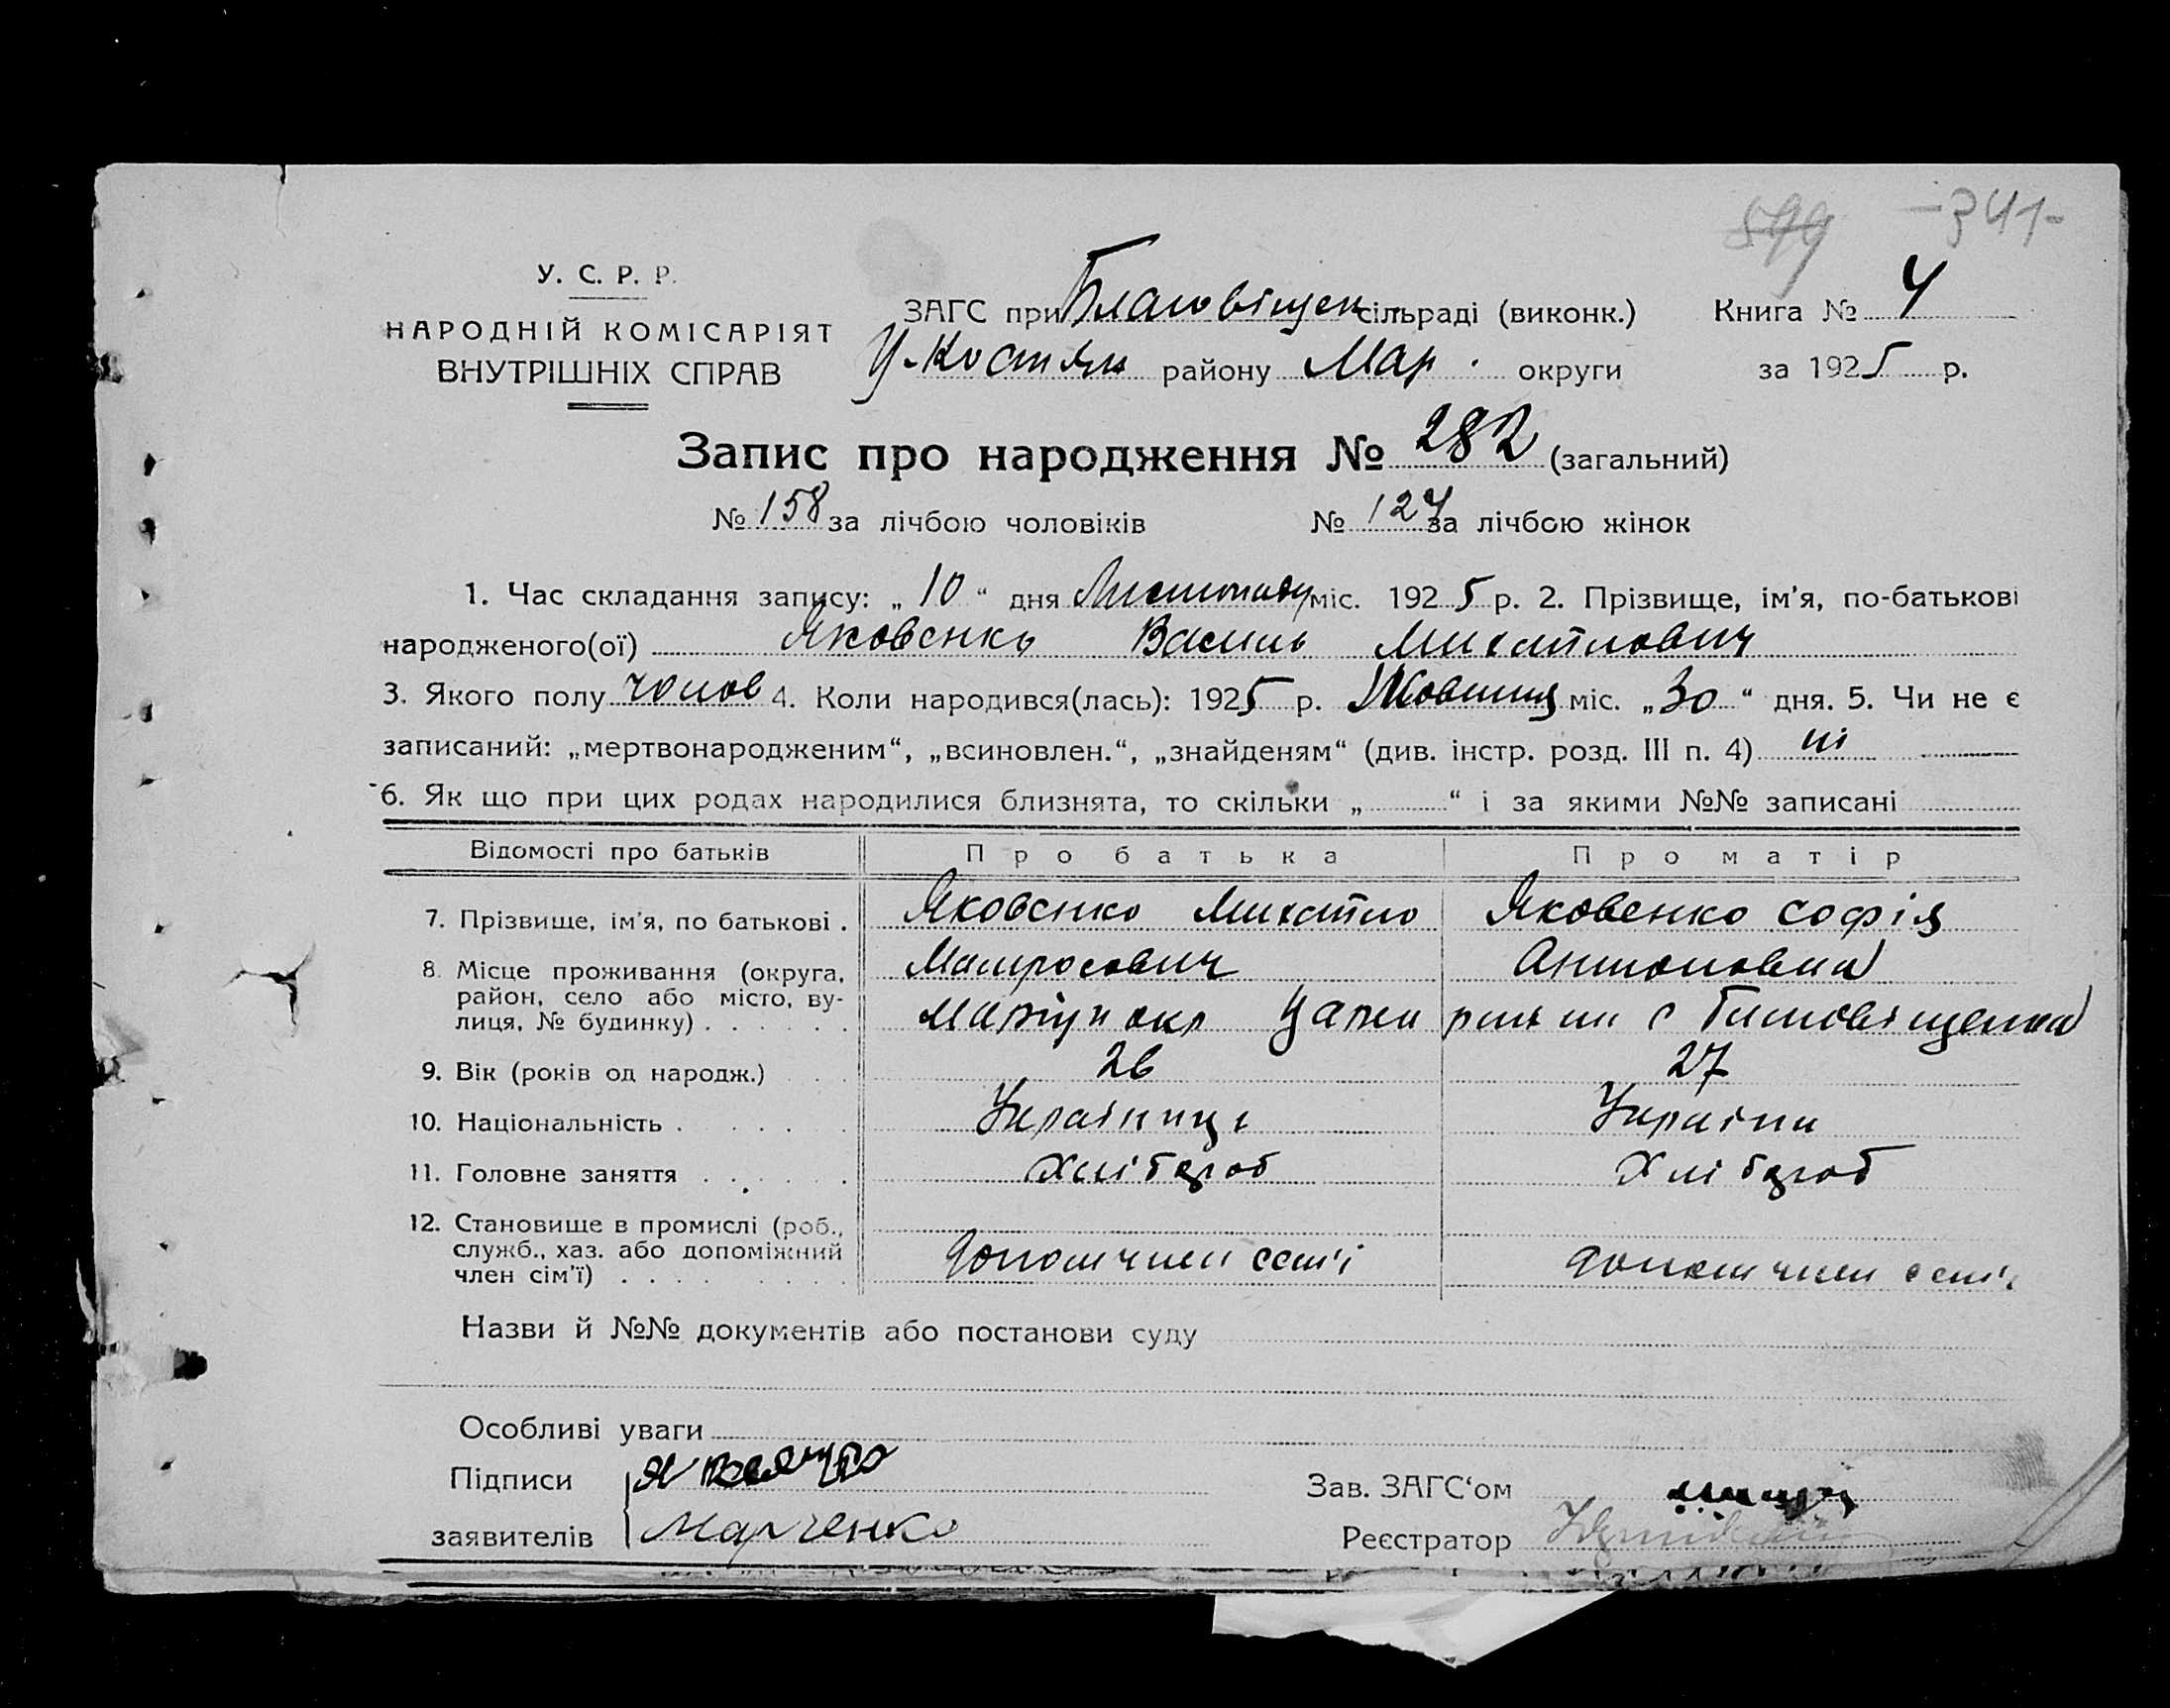 599 -341-
У. С. Р. Р.
НАРОДНІЙ КОМІСАРІЯТ
ВНУТРІШНІХ СПРАВ
ЗАГС при Благовіщен сільраді (виконк.) Книга № 4
У-Костян району Мар. округи за 1925 р.
Запис про народження № 282 (загальний)
№ 158 за лічбою чоловіків № 124 за лічбою жінок
1. Час складання запису: „10“ дня Листопаду міс. 1925 р. 2. Прізвище, ім'я, по-батькові
народженого(ої) Яковенко Василь Михайлович
3. Якого полу чолов 4. Коли народився(лась): 1925 р. Жовтня міс. „30“ дня. 5. Чи не є
записаний: „мертвонародженим“, „всиновлен.“, „знайденям“ (див. інстр. розд. III п. 4) ні
6. Як що при цих родах народилися близнята, то скільки „ “ і за якими №№ записані
Відомості про батьків Про батька Про матір
7. Прізвище, ім'я, по батькові . Яковенко Михайло Яковенко Софія
Матросович Антоновна
8. Місце проживання (округа,
район, село або місто, ву-
лиця, № будинку) . . . . . . Маріуп окр с Благовіщенка
9. Вік (років од народж.) 26 27
10. Національність . . . . . Українці Україн
11. Головне заняття . . . . . . Хлібороб Хлібороб
12. Становище в промислі (роб.,
служб., хаз. або допоміжний
член сім'ї) . . . . . . . . допом член сем'ї допом член сем'ї
Назви й №№ документів або постанови суду
Особливі уваги
Підписи
заявителів Марченко
Зав. ЗАГС‘ом
Реєстратор